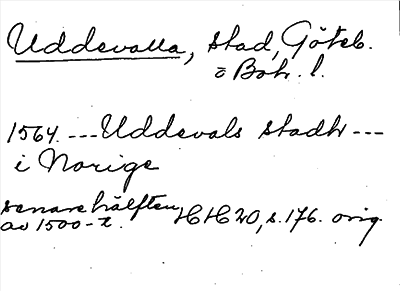 Uddevalla, stad, Göteb.
o Boh. l.
1564. --- Uddevals stadh ---
i Norige
senare hälften
av 1500-t. HH 20, s. 176. orig.